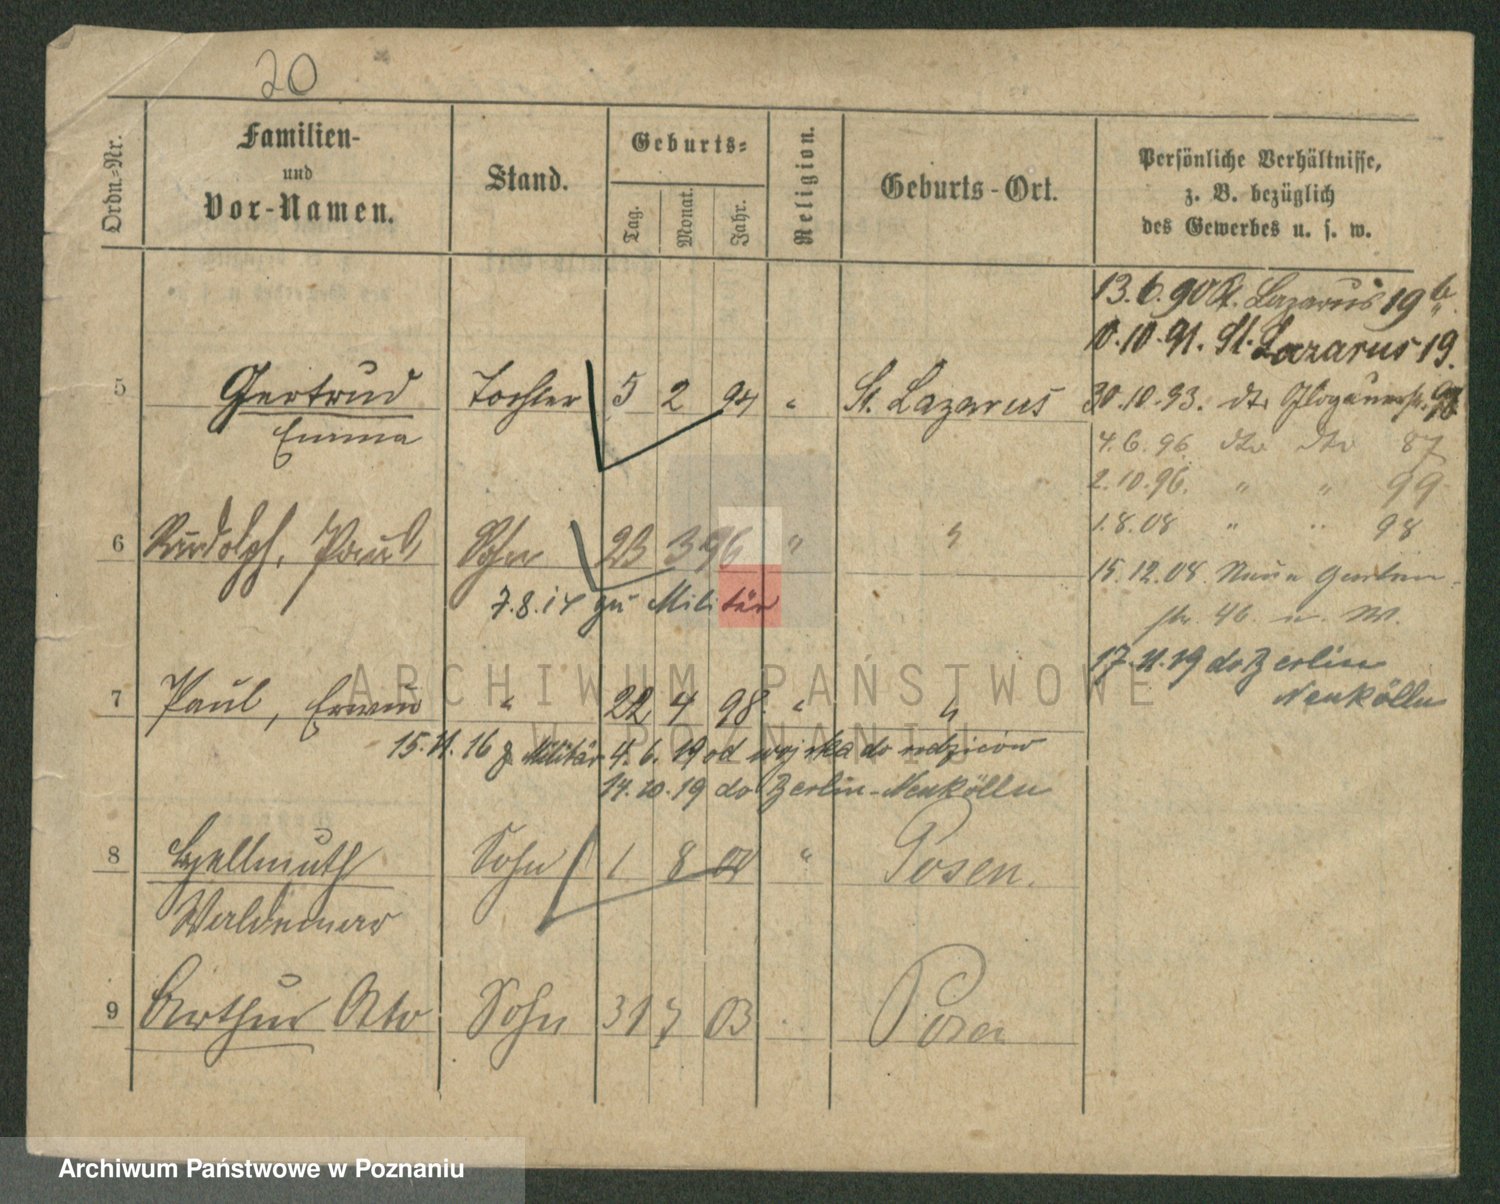 20
Ordn.-Nr.
Familien-
und
Vor-Namen.
Stand.
Geburts-
Tag.
Monat.
Jahr.
Religion.
Geburts-Ort.
Persönliche Verhältnisse,
z. B. bezüglich
des Gewerbes u. s. w.
13.6.90 St. Lazarus 19 b.
10.10.91. St. Lazarus 19.
5 Gertrud Tochter 5 2 94 " St. Lazarus
Emma
30.10.93. dto Glogauerstr. 98
4.6.96. dto dto 87
2.10.96. " " 99
1.8.08 " " 98
6 Rudolph, Paul Sohn 23 3 96 " "
7.8.14 zu Militär
15.12.08. Neue Garten-
str. 46. u. W.
17.11.19 do Berlin
Neukölln
7 Paul, Erwin " 22 4 98. " "
15.11.16 z. Militär 4.6.19 od wojska do rodziców
14.10.19 do Berlin-Neukölln
8 Hellmuth Sohn 1 8 " Posen.
Waldemar
9 Arthur Otto Sohn 31 7 03 Posen
ARCHIWUM PAŃSTWOWE
W POZNANIU
Archiwum Państwowe w Poznaniu